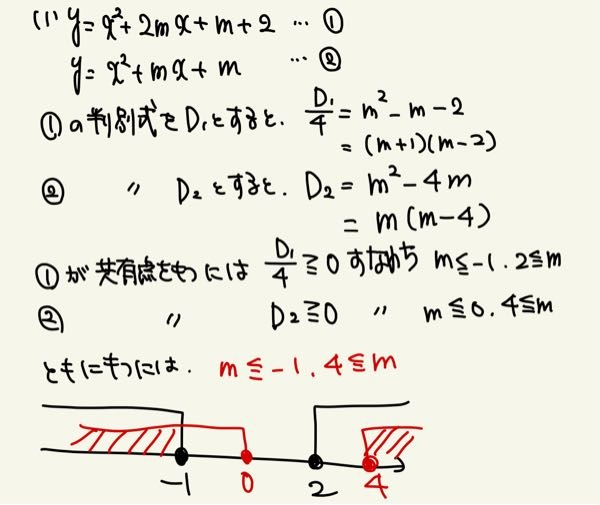 (1) y=x²+2mx+m+2 … ①
y=x²+mx+m … ②
①の判別式をD₁とすると. D₁/4 = m²-m-2
= (m+1)(m-2)
② 〃 D₂とすると. D₂ = m²-4m
= m(m-4)
①が共有点をもつには D₁/4 ≧0 すなわち m≦-1. 2≦m
② 〃 D₂≧0 〃 m≦0. 4≦m
ともにもつには. m≦-1. 4≦m
-1 0 2 4